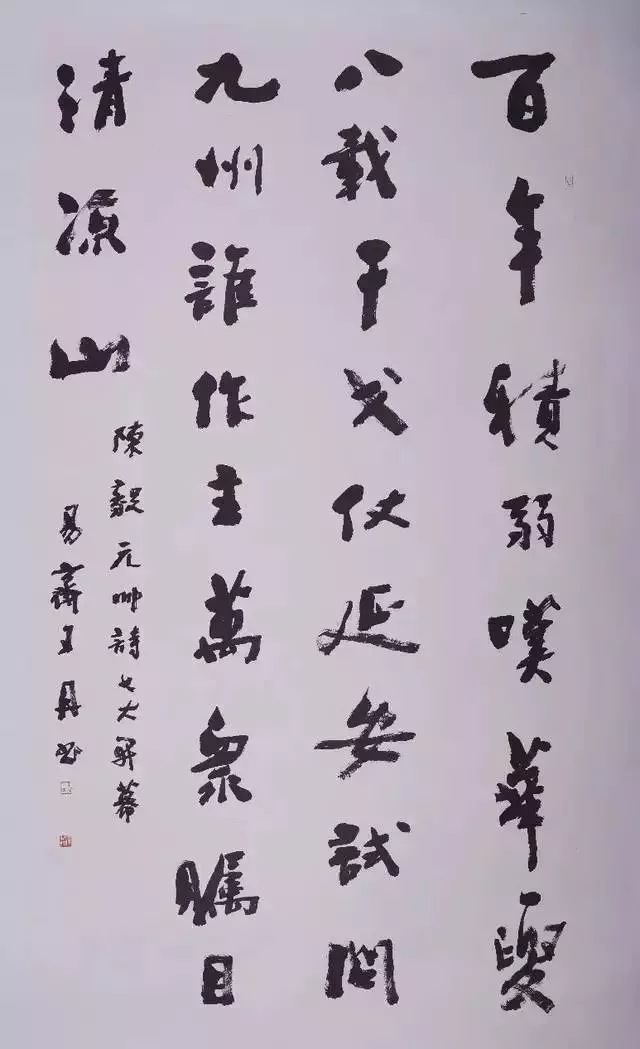 百年積弱嘆華夏
八載干戈仗延安試問
九州誰作主萬衆矚目
清涼山
陳毅元帥詩七大開幕
易齋王丹書